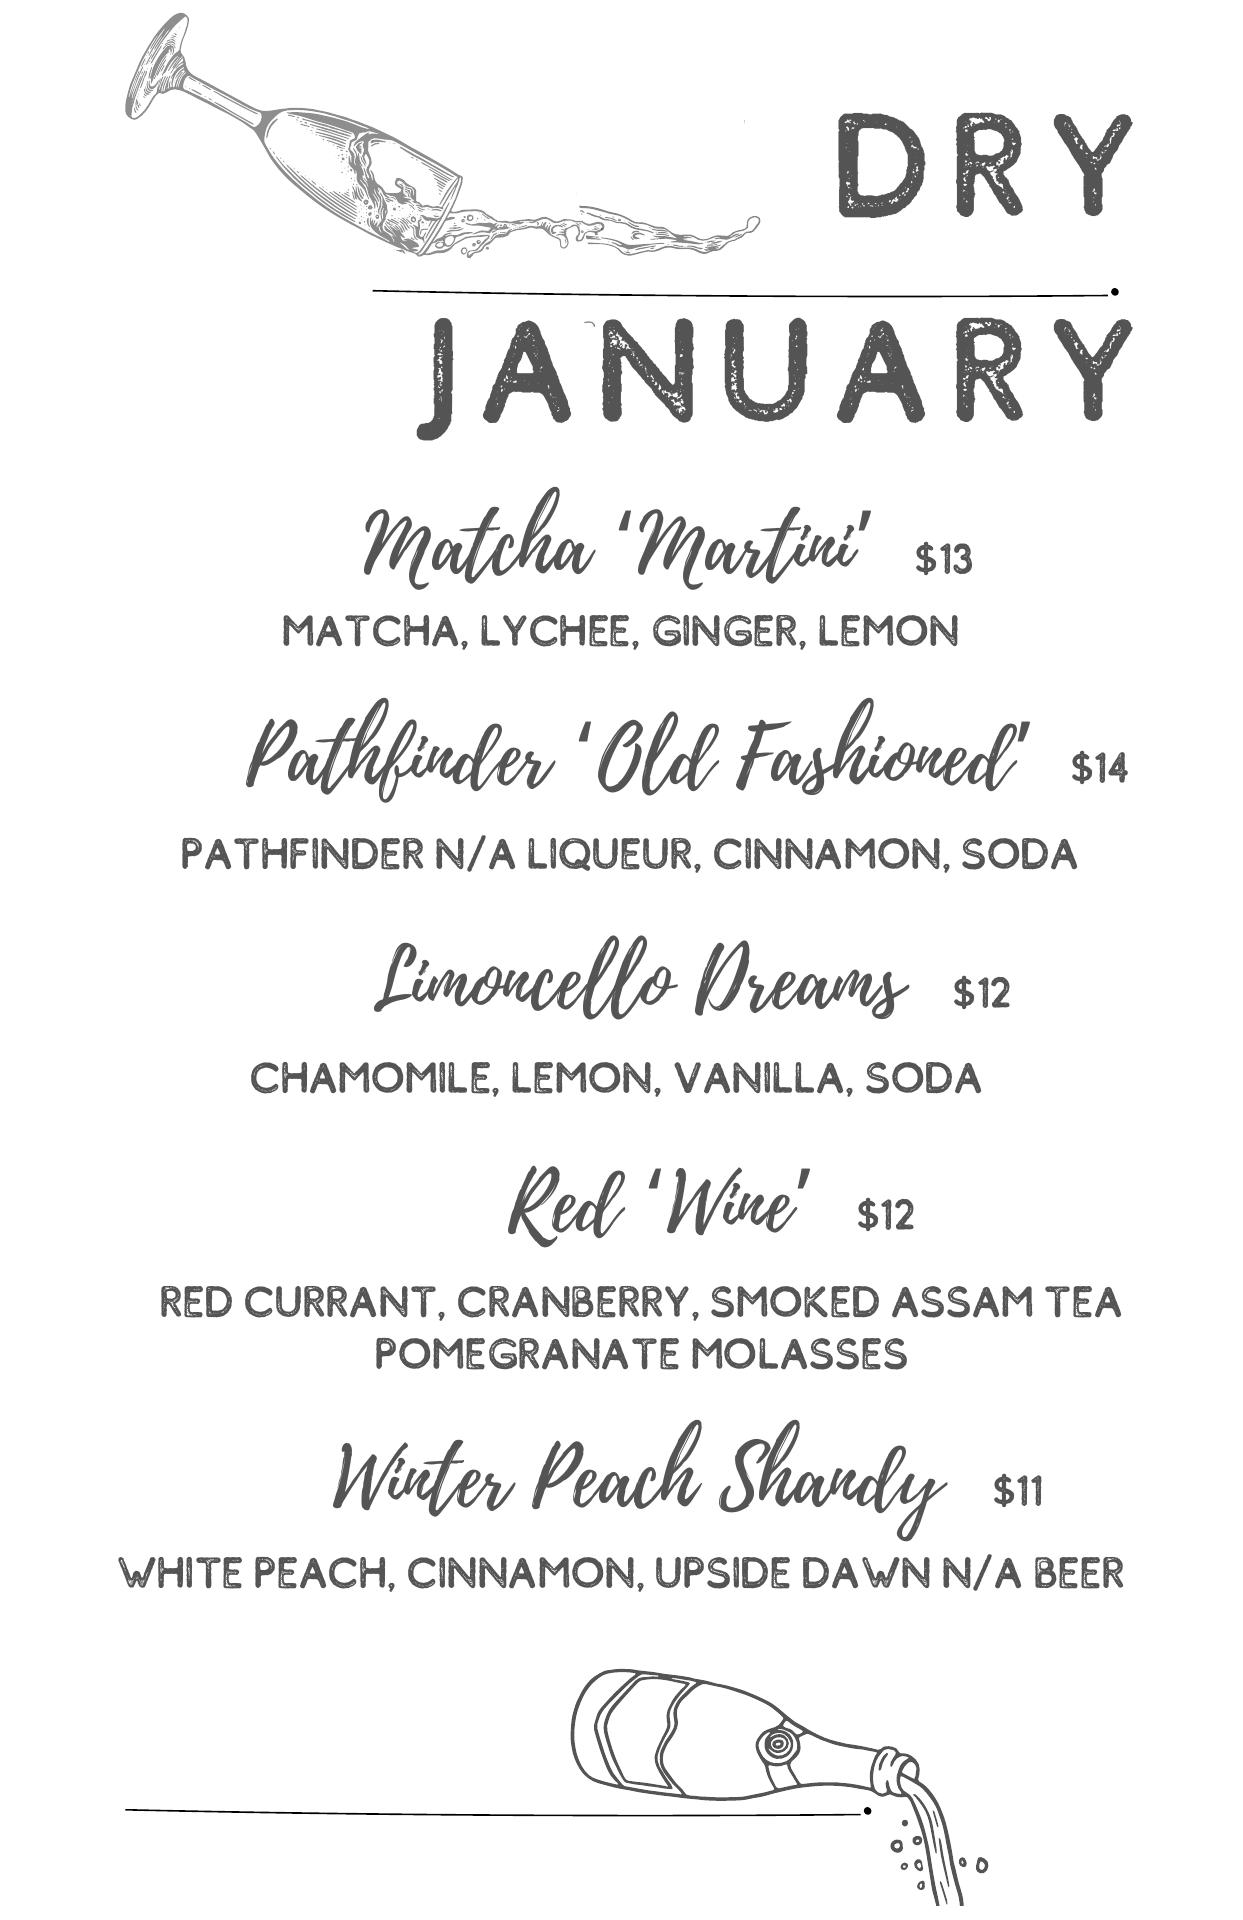 DRY
JANUARY
Matcha ‘Martini’ $13
MATCHA, LYCHEE, GINGER, LEMON
Pathfinder ‘Old Fashioned’ $14
PATHFINDER N/A LIQUEUR, CINNAMON, SODA
Limoncello Dreams $12
CHAMOMILE, LEMON, VANILLA, SODA
Red ‘Wine’ $12
RED CURRANT, CRANBERRY, SMOKED ASSAM TEA
POMEGRANATE MOLASSES
Winter Peach Shandy $11
WHITE PEACH, CINNAMON, UPSIDE DAWN N/A BEER